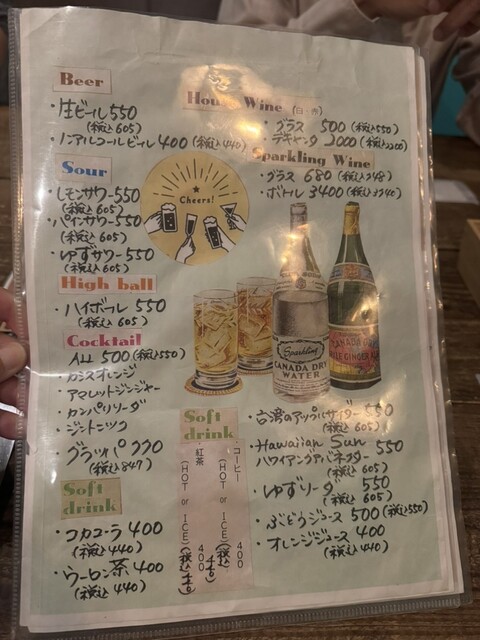 Beer
・生ビール 550
(税込 605)
・ノンアルコールビール 400 (税込 440)
Sour
・レモンサワー 550
(税込 605)
・パインサワー 550
(税込 605)
・ゆずサワー 550
(税込 605)
High ball
・ハイボール 550
(税込 605)
Cocktail
ALL 500 (税込 550)
・カシスオレンジ
・アマレットジンジャー
・カンパリソーダ
・ジントニック
・グラッパ 770
(税込 847)
Soft drink
・コカコーラ 400
(税込 440)
・ウーロン茶 400
(税込 440)
House Wine (白・赤)
・グラス 500 (税込 550)
・デキャンタ 2000 (税込 2200)
Sparkling Wine
・グラス 680 (税込 748)
・ボトル 3400 (税込 3740)
Cheers!
Sparkling
CANADA DRY
WATER
GINGER
Soft drink
コーヒー
(HOT or ICE) 400
(税込 440)
紅茶
(HOT or ICE) 400
(税込 440)
・台湾のアップルサイダー 550
(税込 605)
・Hawaiian Sun 550
ハワイアングアバネクター
(税込 605)
・ゆずソーダ 550
(税込 605)
・ぶどうジュース 500 (税込 550)
・オレンジジュース 400
(税込 440)